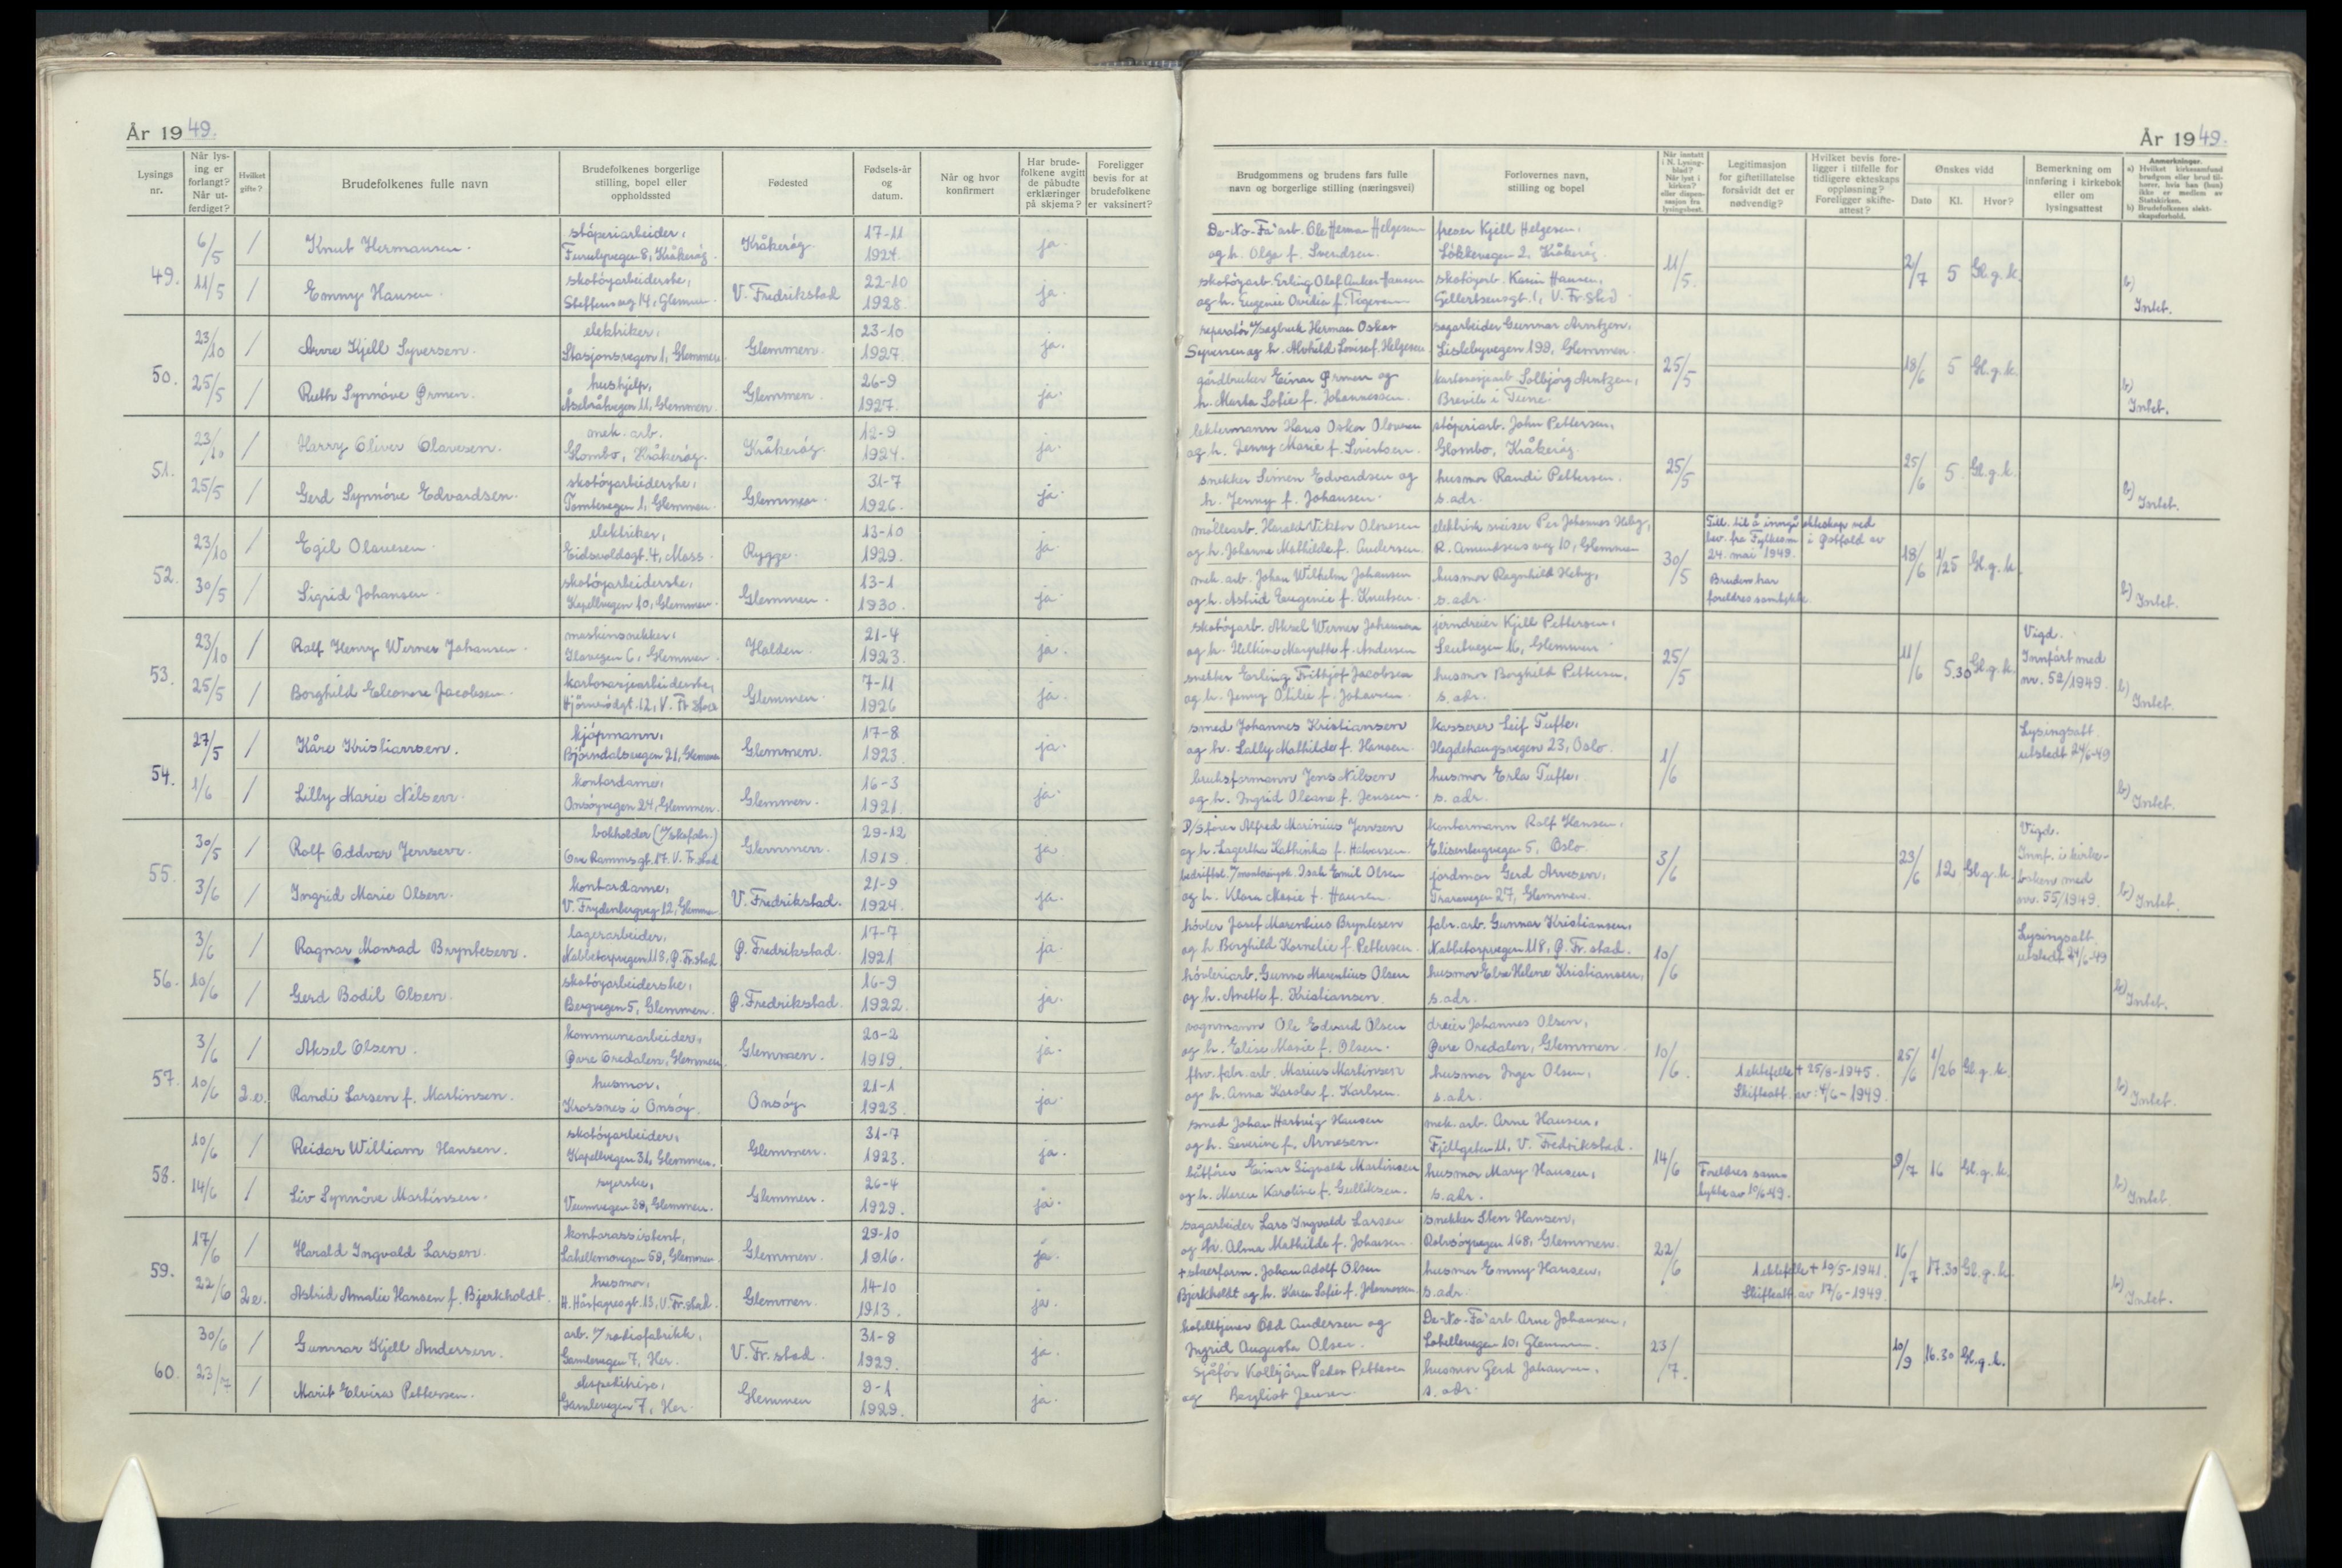 År 1949.
Lysings nr.
Når lysing er forlangt? Når utferdiget?
Hvilket gifte?
Brudefolkenes fulle navn
Brudefolkenes borgerlige stilling, bopel eller oppholdssted
Fødested
Fødsels-år og datum.
Når og hvor konfirmert
Har brudefolkene avgitt de påbudte erklæringer på skjema?
Foreligger bevis for at brudefolkene er vaksinert?
49.
6/5 1 Knut Hermansen. støperiarbeider, Kråkerøy. 17-11 ja.
Furulyvegen 8, Kråkerøy. 1924.
11/5 1 Emmy Hansen. skotøyarbeiderske, V. Fredrikstad 22-10 ja.
Steffensveg 14, Glemmen. 1928.
50.
23/10 1 Arne Kjell Syversen. elektriker, Glemmen. 23-10 ja.
Stasjonsvegen 1, Glemmen. 1927.
25/5 1 Ruth Synnöve Ørmen. hushjelp, Glemmen. 26-9 ja.
Åsebråtvegen 11, Glemmen. 1927.
51.
23/10 1 Harry Oliver Olavesen. mek. arb. Kråkerøy. 12-9 ja.
Glombo, Kråkerøy. 1924.
25/5 1 Gerd Synnöve Edvardsen. skotøyarbeiderske, Glemmen. 31-7 ja.
Tomtevegen 1, Glemmen. 1926.
52.
23/10 1 Egil Olavesen. elektriker, Rygge. 13-10 ja.
Eidsvoldsgt. 4, Moss. 1929.
30/5 1 Sigrid Johansen. skotøyarbeiderske, Glemmen. 13-1 ja.
Kapellvegen 10, Glemmen. 1930.
53.
23/10 1 Rolf Henry Werner Johansen. maskinsnekker, Halden. 21-4 ja.
Ilavegen 6, Glemmen. 1923.
25/5 1 Borghild Eleonore Jacobsen. kartonasjearbeiderske, Glemmen 7-11 ja.
12, V. Fr.stad 1926
54.
27/5 1 Kåre Kristiansen. kjøpmann, Glemmen. 17-8 ja.
Bjørndalsvegen 21, Glemmen 1923
1/6 1 Lilly Marie Nilsen. kontordame, Glemmen. 16-3 ja.
Onsøyvegen 24, Glemmen. 1921.
55.
30/5 1 Rolf Oddvar Jensen. bokholder (v/skofabr.) Glemmen. 29-12 ja
Ove Rammsgt. 17. V. Fr.stad 1919.
3/6 1 Ingrid Marie Olsen. kontordame, V. Fredrikstad. 21-9 ja.
V. Frydenbergveg 12, Glemmen 1924.
56.
3/6 1 Ragnar Monrad Bryntesen. lagerarbeider, Ø. Fredrikstad. 17-7 ja.
Nabbetorpvegen 118, Ø. Fr.stad 1921
10/6 1 Gerd Bodil Olsen. skotøyarbeiderske, Ø. Fredrikstad. 16-9 ja.
Bergvegen 5, Glemmen. 1922.
57.
3/6 1 Aksel Olsen. kommunearbeider, Glemmen. 20-2 ja.
Øvre Oredalen, Glemmen. 1919.
10/6 2.e. Randi Larsen f. Martinsen. husmor, Onsøy 21-1 ja.
Krossnes i Onsøy. 1923.
58.
10/6 1 Reidar William Hansen. skotøyarbeider, Glemmen. 31-7 ja.
Kapellvegen 31, Glemmen. 1923.
14/6 1 Liv Synnöve Martinsen. syerske, Glemmen. 26-4 ja.
Veumvegen 38, Glemmen. 1929.
59.
17/6 1 Harald Ingvald Larsen. kontorassistent, Glemmen. 29-10 ja.
Lahellemovegen 59, Glemmen 1916.
22/6 2.e. Astrid Amalie Hansen f. Bjerkholdt. husmor, Glemmen. 14-10 ja.
H. Hårfagresgt. 13, V. Fr.stad. 1913.
60.
30/6 1 Gunnar Kjell Andersen. arb. v/radiofabrikk, V. Fr.stad. 31-8 ja.
Gamlevegen 7, Her. 1929.
23/7 1 Marit Elvira Pettersen. ekspeditrise, Glemmen 9-1 ja.
Gamlevegen 7, Her. 1929.
År 1949.
Brudgommens og brudens fars fulle navn og borgerlige stilling (næringsvei)
Forlovernes navn, stilling og bopel
Når inntatt i N. Lysingblad? Når lyst i kirken? eller dispensasjon fra lysingsbest.
Legitimasjon for giftetillatelse forsåvidt det er nødvendig?
Hvilket bevis foreligger i tilfelle for tidligere ekteskaps oppløsning? Foreligger skifteattest?
Ønskes vidd
Dato Kl. Hvor?
Bemerkning om innføring i kirkebok eller om lysingsattest
Anmerkninger.
a) Hvilket kirkesamfund brudgom eller brud tilhører, hvis han (hun) ikke er medlem av Statskirken.
b) Brudefolkenes slektskapsforhold.
De-No-Fa arb. Ole Herman Helgesen freser Kjell Helgesen,
og h. Olga f. Svendsen. Løkkevegen 2, Kråkerøy.
11/5 2/7 5 Gl.g.k. b) Intet.
skotøyarb. Erling Olaf Anker Hansen skotøyarb. Karin Hansen,
og h. Eugenie Ovidia f. Gellertsensgt. 1, V. Fr.stad
reperatör v/sagbruk Herman Oskar sagarbeider Gunnar Arntzen,
Syversen og h. Alvhild Lovise f. Helgesen Lislebyvegen 199, Glemmen.
25/5 18/6 5 Gl.g.k. b) Intet.
gårdbruker Einar Ørmen og kartonasjearb. Solbjørg Arntzen,
h. Marta Sofie f. Johannessen. Brevik i Tune.
lektermann Hans Oskar Olavesen støperiarb. John Pettersen,
og h. Jenny Marie f. Sivertsen. Glombo, Kråkerøy.
25/5 25/6 5. Gl.g.k. b) Intet.
snekker Simen Edvardsen og husmor Randi Pettersen.
h. Jenny f. Johansen. s. adr.
möllearb. Harald Viktor Olavesen elektrisk sveiser Per Johannes Heby,
og h. Johanne Mathilde f. Andersen. R. Amundsens veg 10, Glemmen
Till. til å inngå ekteskap ved
bev. fra Fylkesm. i Østfold av
24. mai 1949.
30/5 18/6 1/25 Gl.g.k. b) Intet.
mek. arb. Johan Wilhelm Johansen husmor Ragnhild Heby,
og h. Astrid Eugenie f. Knutsen. s. adr.
Bruden har
foreldres samtykke.
skotøyarb. Aksel Werner Johansen jerndreier Kjell Pettersen,
og h. Margrethe f. Andersen 16, Glemmen.
25/5 11/6 5.30 Gl.g.k. Vigd.
Innført med
nr. 52/1949. b) Intet.
snekker Erling Frithjof Jacobsen husmor Borghild Pettersen,
og h. Jenny Otilie f. Johansen. s. adr.
smed Johannes Kristiansen kasserer Leif Tufte,
og h. Lally Mathilde f. Hansen. Hegdehaugsvegen 23, Oslo.
1/6 Lysingsatt.
utstedt 24/6-49 b) Intet.
bruksformann Jens Nilsen husmor Erla Tufte,
og h. Ingrid Oleane f. Jensen. s. adr.
D/S fører Alfred Marinius Jensen kontormann Rolf Hansen,
og h. Lagertha Kathinka f. Halvorsen. Elisenbergvegen 5, Oslo.
3/6 23/6 12 Gl.g.k. Vigd.
Innf. i kirke-
boken med
nr. 55/1949. b) Intet.
Isak Emil Olsen jordmor Gerd Arnesen,
og h. Klara Marie f. Hansen. Traravegen 27, Glemmen.
høvler Josef Marentius Bryntesen fabr. arb. Gunnar Kristiansen,
og h. Borghild Kornelie f. Pettersen. Nabbetorpvegen 118, Ø. Fr.stad.
10/6 Lysingsatt.
utstedt 24/6-49 b) Intet.
høvleriarb. Gunnar Marentius Olsen husmor Else Helene Kristiansen,
og h. Anette f. Kristiansen. s. adr.
vognmann Ole Edvard Olsen dreier Johannes Olsen,
og h. Elise Marie f. Olsen. Øvre Oredalen, Glemmen.
10/6. 25/6 1/26 Gl.g.k. b) Intet.
fhv. fabr. arb. Marius Martinsen husmor Inger Olsen,
og h. Anna Karola f. Karlsen. s. adr.
1 ektefelle + 25/8-1945.
Skifteatt. av: 4/6-1949.
smed Johan Hartvig Hansen mek. arb. Arne Hansen,
og h. Severine f. Arnesen. Fjellgaten 11, V. Fredrikstad.
14/6 9/7 16 Gl.g.k. b) Intet.
båtfører Einar Sigvald Martinsen husmor Mary Hansen,
og h. Maren Karoline f. Gulliksen. s. adr.
Foreldres sam-
tykke av 10/6-49.
sagarbeider Lars Ingvald Larsen snekker Sten Hansen,
og h. Alma Mathilde f. Johansen. Rolvsøyvegen 168, Glemmen.
22/6 16/7 17.30 Gl.g.k. b) Intet.
+ Johan Adolf Olsen husmor Emmy Hansen,
Bjerkholdt og h. Karen Sofie f. Johannessen. s. adr.
1 ektefelle + 19/5-1941.
Skifteatt. av 17/6-1949.
hotelltjener Odd Andersen og De-No-Fa arb. Arne Johansen,
Ingrid Augusta Olsen. Lahellevegen 10, Glemmen.
23/7. 10/9 16.30 Gl.g.k.
Sjåfør Kolbjørn Peder Pettersen husmor Gerd Johansen.
og Bergliot Jensen. s. adr.